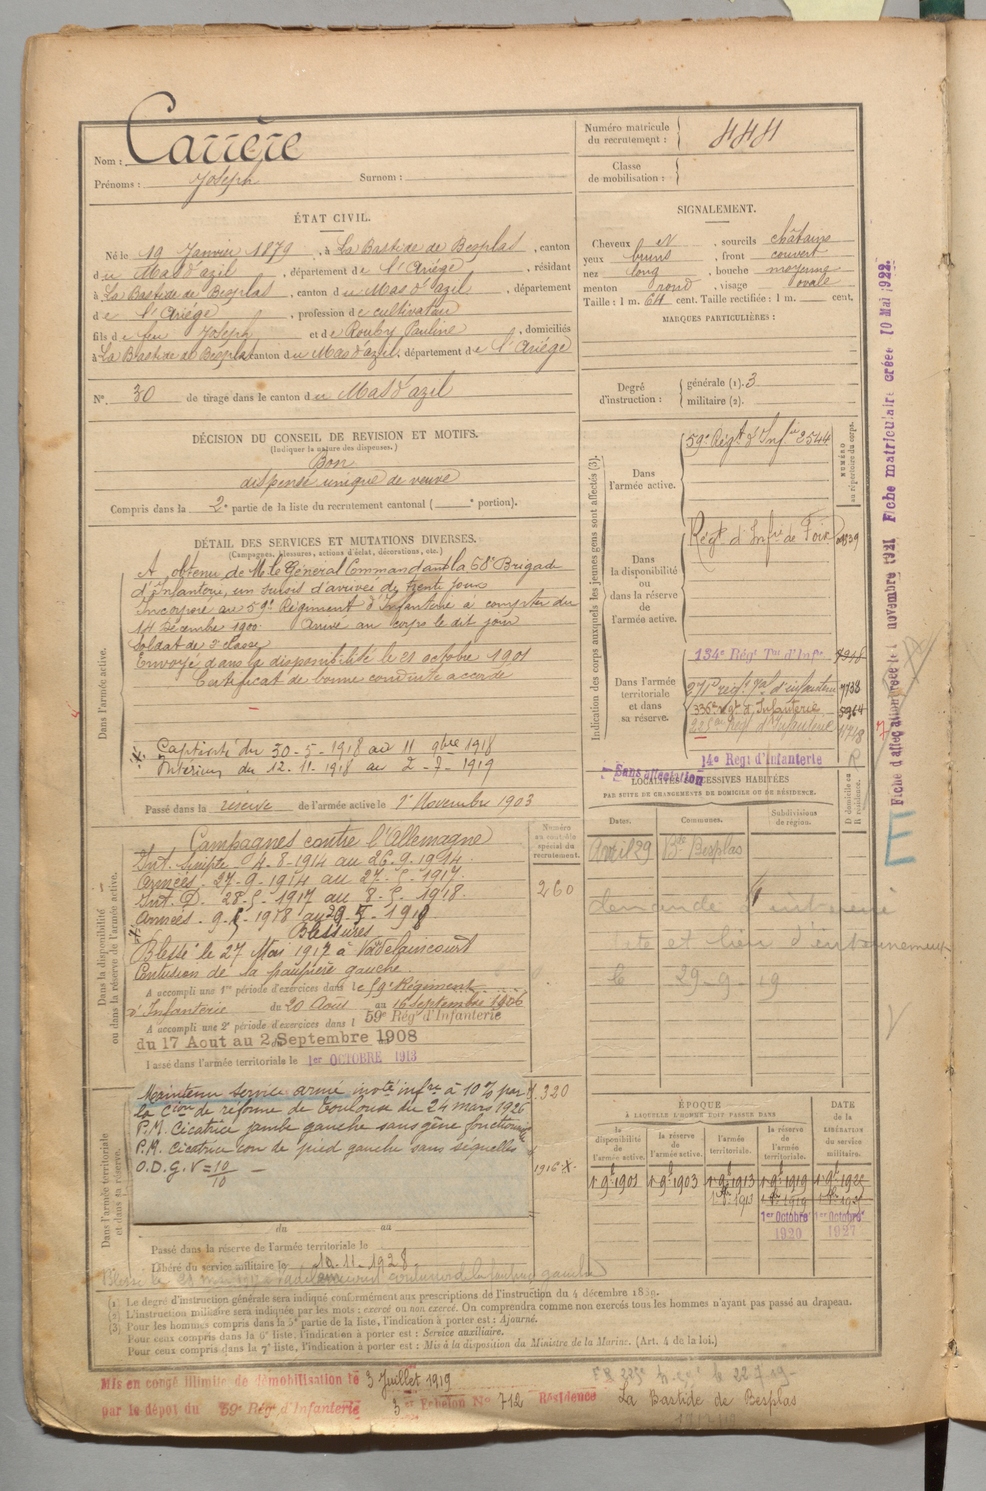 Nom : Carrère
Prénoms : Joseph Surnom :
ÉTAT CIVIL.
Né le 19 Janvier 1879, à La Bastide de Besplas, canton
du Mas d'azil, département de l'Ariège, résidant
à La Bastide de Besplas, canton du Mas d'azil, département
de l'Ariège, profession de cultivateur
fils de feu Joseph et de Rouby Pauline, domiciliés
à La Bastide de Besplas canton du Mas d'azil, département de l'Ariège
N° 30 de tirage dans le canton du Mas d'azil
DÉCISION DU CONSEIL DE REVISION ET MOTIFS.
(Indiquer la nature des dispenses.)
Bon
dispensé unique de veuve
Compris dans la 2e partie de la liste du recrutement cantonal ( e portion).
DÉTAIL DES SERVICES ET MUTATIONS DIVERSES.
(Campagnes, blessures, actions d'éclat, décorations, etc.)
Dans l'armée active.
A obtenu de M. le Général Commandant la 68e Brigade
d'Infanterie, un sursis d'arrivée de trente jours
Incorporé au 59e Régiment d'Infanterie à compter du
14 Décembre 1900. Arrivé au corps le dit jour
Soldat de 2e classe
Envoyé dans la disponibilité le 21 octobre 1901
Certificat de bonne conduite accordé
Captivité du 30-5-1918 au 11 9bre 1918
Intérieur du 12.11.1918 au 2-7-1919
Passé dans la réserve de l'armée active le 1er Novembre 1903
Dans la disponibilité
ou dans la réserve de l'armée active.
Numéro
au contrôle
spécial du
recrutement.
260
Campagnes contre l'Allemagne
Int. Simple. 4.8-1914 au 26.9.1914.
Armées. 27-9-1914 au 27.5.1917.
Int. D. 28-5-1917 au 8-5.1918.
Armées. 9.5.1918 au 29.5-1918
Blessures
Blessé le 27 Mai 1917 à Vadelaincourt
Contusion de la paupière gauche.
A accompli une 1re période d'exercices dans le 59e Régiment
d'Infanterie du 20 Août au 16 septembre 1906
A accompli une 2e période d'exercices dans l 59e Rég d'Infanterie
du 17 Aout au 2 Septembre 1908
Passé dans l'armée territoriale le 1er OCTOBRE 1913
Dans l'armée territoriale
et dans sa réserve.
Maintenu service armé invté infre à 10 % par
la Cion de réforme de Toulouse du 24 mars 1926
P.M. Cicatrice jambe gauche sans gêne fonctionnelle
P.M. Cicatrice con de pied gauche sans séquelles
O.D.G. V = 10/10
320
1916
du au
Passé dans la réserve de l'armée territoriale le
Libéré du service militaire le 10-11-1928.
(1) Le degré d'instruction générale sera indiqué conformément aux prescriptions de l'instruction du 4 décembre 1889.
(2) L'instruction militaire sera indiquée par les mots : exercé ou non exercé. On comprendra comme non exercés tous les hommes n'ayant pas passé au drapeau.
(3) Pour les hommes compris dans la 5e partie de la liste, l'indication à porter est : Ajourné.
Pour ceux compris dans la 6e liste, l'indication à porter est : Service auxiliaire.
Pour ceux compris dans la 7e liste, l'indication à porter est : Mis à la disposition du Ministre de la Marine. (Art. 4 de la loi.)
Mis en congé illimité de démobilisation le 3 Juillet 1919
par le dépôt du 59e Rég d'Infanterie 3e Echelon N° 712 Résidence La Bastide de Besplas
Numéro matricule
du recrutement : 444
Classe
de mobilisation :
SIGNALEMENT.
Cheveux et sourcils châtains
yeux bruns, front couvert
nez long, bouche moyenne
menton rond, visage ovale
Taille : 1 m. 64 cent. Taille rectifiée : 1 m. cent.
MARQUES PARTICULIÈRES :
Degré
d'instruction :
générale (1). 3
militaire (2).
Indication des corps auxquels les jeunes gens sont affectés (3).
NUMÉRO
au répertoire du corps.
Dans
l'armée active.
59e Régt d'Infie 2544
Dans
la disponibilité
ou dans
la réserve de
l'armée active.
Régt d'Infie de Foix 01539
Dans l'armée
territoriale
et dans
sa réserve.
134e Rég Tal d'Infie
271e régt Tal d'infanterie 7738
336e Rgt d'Infanterie 5964
14e Régt d'Infanterie
Sans affectation
LOCALITÉS SUCCESSIVES HABITÉES
PAR SUITE DE CHANGEMENTS DE DOMICILE OU DE RÉSIDENCE.
D domicile ou
R résidence.
Dates. Communes. Subdivisions
de région.
Avril 29 Bde Besplas R
demande d'
le 29-9-19
ÉPOQUE
À LAQUELLE L'HOMME DOIT PASSER DANS
DATE
de la
LIBÉRATION
du service
militaire.
la
disponibilité
de
l'armée active.
la réserve
de
l'armée active.
l'armée
territoriale.
la réserve
de
l'armée
territoriale.
1er 9b 1901 1er 9b 1903 1er 9b 1913 1er 9b 1919 1er 9b 1925
1er Octobre 1920 1er Octobre 1927
Fiche d'affectation créée le novembre 1921 Fiche matriculaire créée 10 Mai 1922.
E